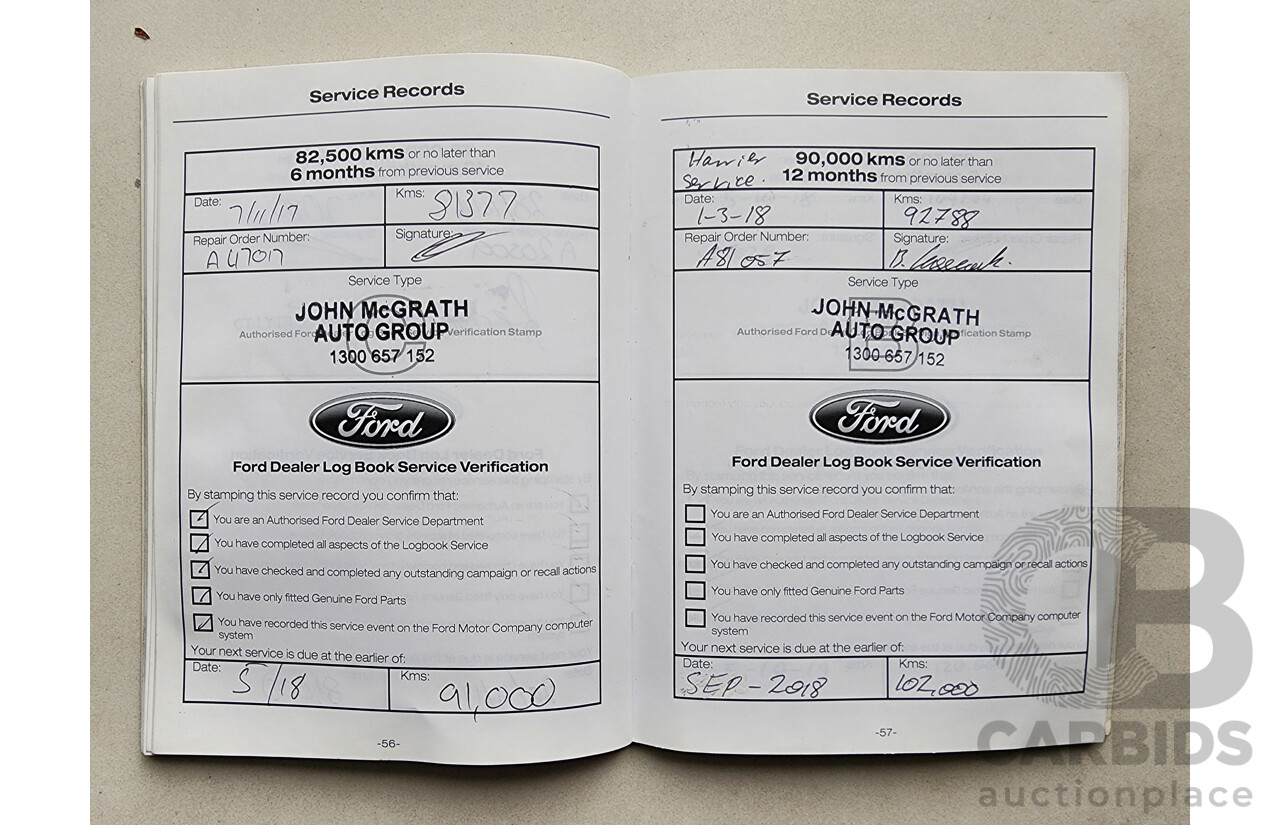 Service Records
82,500 kms or no later than
6 months from previous service
Date: 7/11/17
Kms: 81377
Repair Order Number: A47017
Signature:
Service Type
C
JOHN McGRATH
AUTO GROUP
1300 657 152
Authorised Ford Verification Stamp
Ford
Ford Dealer Log Book Service Verification
By stamping this service record you confirm that:
You are an Authorised Ford Dealer Service Department
You have completed all aspects of the Logbook Service
You have checked and completed any outstanding campaign or recall actions
You have only fitted Genuine Ford Parts
You have recorded this service event on the Ford Motor Company computer
system
Your next service is due at the earlier of:
Date: 5/18
Kms: 91,000
-56-
Service Records
Harrier
Service.
90,000 kms or no later than
12 months from previous service
Date: 1-3-18
Kms: 92788
Repair Order Number: A81057
Signature:
Service Type
B
JOHN McGRATH
AUTO GROUP
1300 657 152
Authorised Ford Verification Stamp
Ford
Ford Dealer Log Book Service Verification
By stamping this service record you confirm that:
You are an Authorised Ford Dealer Service Department
You have completed all aspects of the Logbook Service
You have checked and completed any outstanding campaign or recall actions
You have only fitted Genuine Ford Parts
You have recorded this service event on the Ford Motor Company computer
system
Your next service is due at the earlier of:
Date: SEP - 2018
Kms: 102,000
-57-
CB
CARBIDS
auctionplace